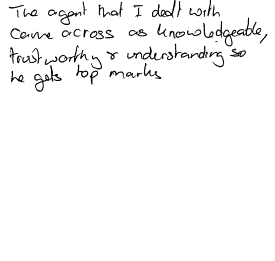 The agent that I dealt with
came across as knowledgeable,
trustworthy & understanding so
he gets top marks